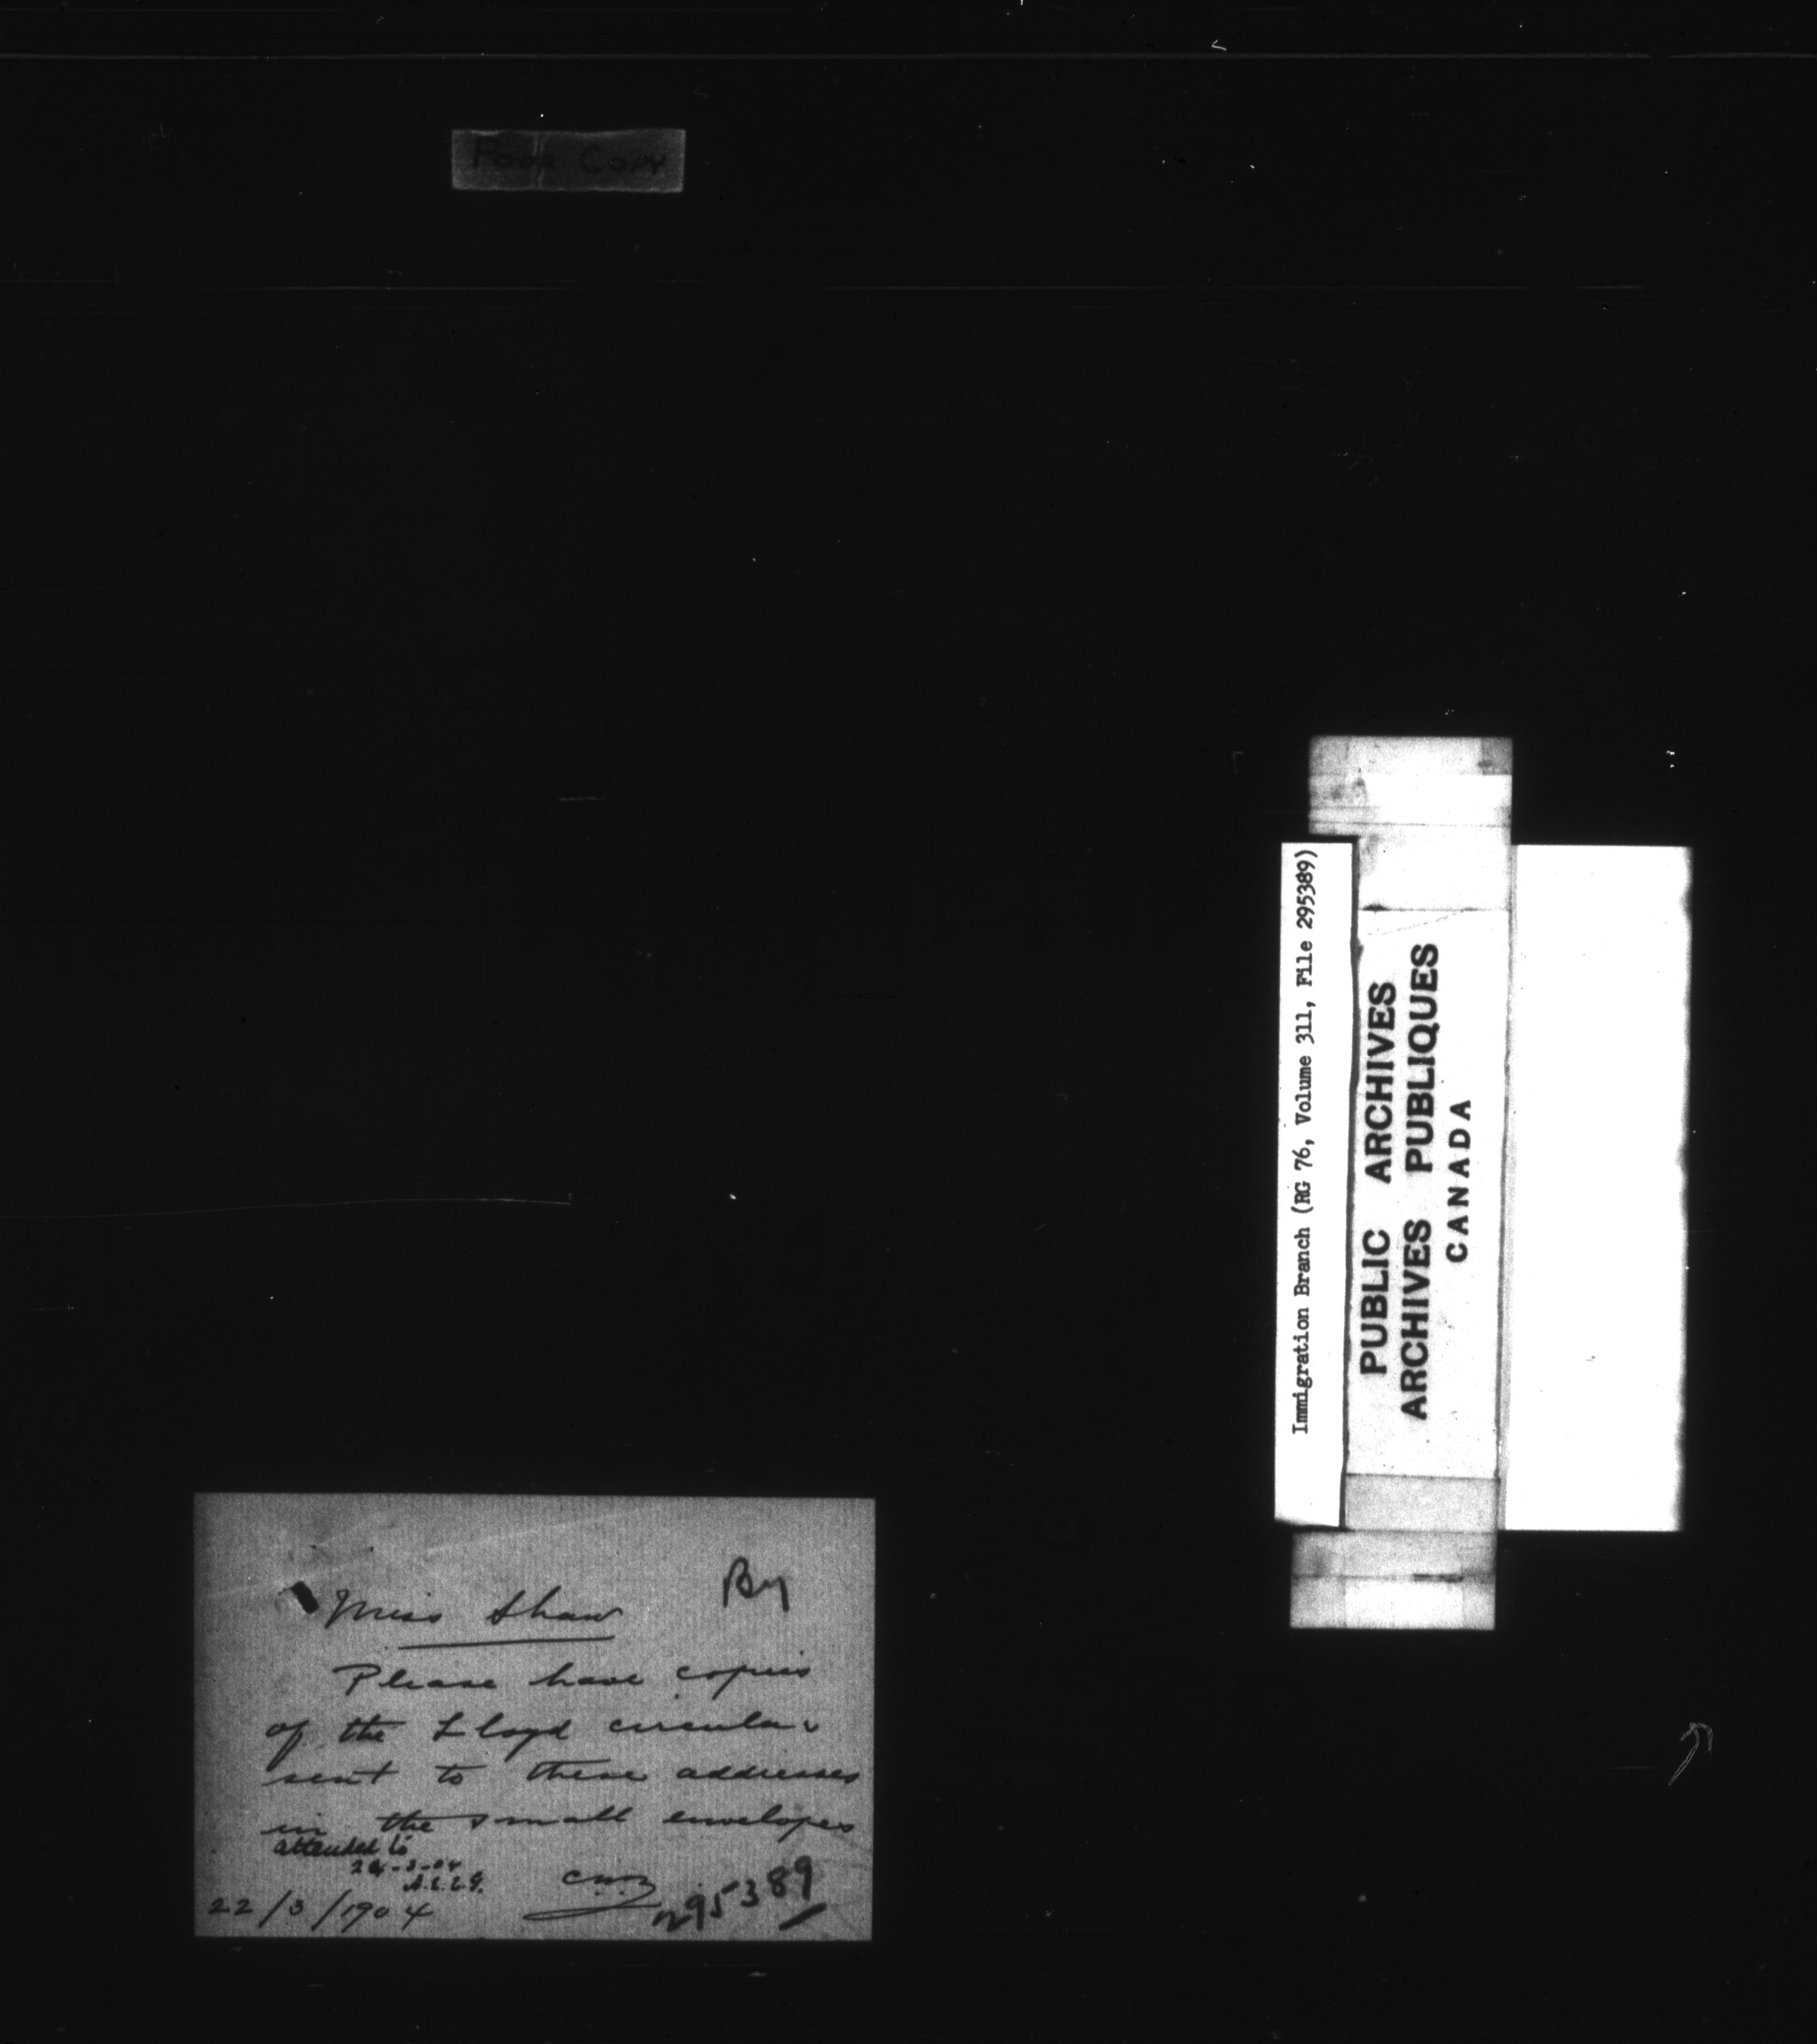 Poor Copy
Immigration Branch (RG 76, Volume 311, File 295389)
PUBLIC ARCHIVES
ARCHIVES PUBLIQUES
CANADA
Miss Shaw
Please have copies
of the Lloyd circular
sent to these addresses
in the small envelopes
attended to
22/3/1904
295389